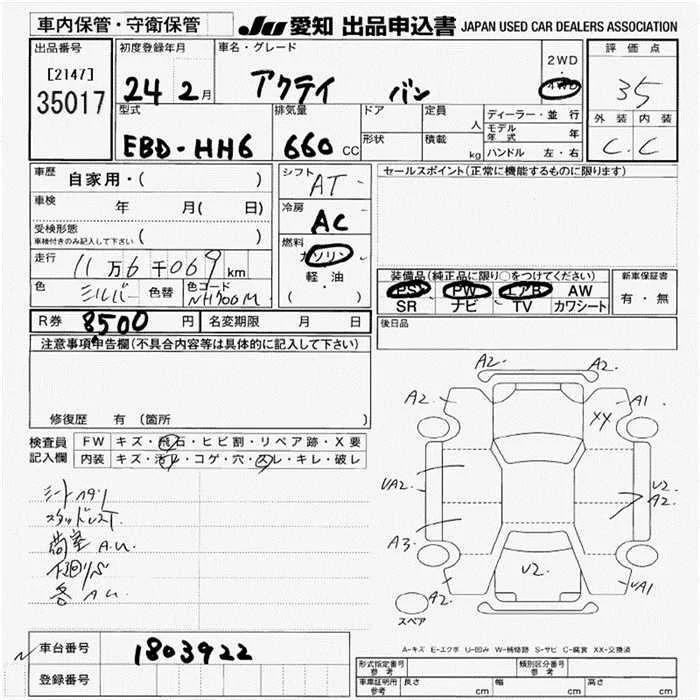 車内保管・守衛保管
JU 愛知 出品申込書 JAPAN USED CAR DEALERS ASSOCIATION
出品番号 初度登録年月 車名・グレード 2WD 評価点
[2147] 35017 24 2月 アクティ バン 4WD 35
型式 排気量 ドア 定員 人 ディーラー・並行 外装 内装
EBD-HH6 660 CC 形状 積載 kg モデル年式 年 C C
ハンドル 左・右
車歴 自家用・( ) シフト AT セールスポイント(正常に機能するものに限ります)
車検 年 月( 日) 冷房 AC
受検形態 車検付きのみ記入して下さい ( )
燃料 ガソリン
走行 11万6千069km 軽・油 装備品(純正品に限り○をつけてください) 新車保証書
色 シルバー 色替 色コード NH700M ( ) PS PW エアB AW 有・無
SR ナビ TV カワシート
R券 8500円 名変期限 月 日 後日品
注意事項申告欄(不具合内容等は具体的に記入して下さい)
A2 A2
A2 A1
XX
修復歴 有(箇所
検査員 FW キズ・飛石・ヒビ割・リペア跡・X要
記入欄 内装 キズ・汚レ・コゲ・穴・スレ・キレ・破レ
UA2 U2 A2
A3
U2
A2 UA1
荷室 A.U.
スペア
A-キズ E-エクボ U-凹み W-補修跡 S-サビ C-腐食 XX-交換済
車台番号 1803922
登録番号
形式指定番号 参考 類別区分番号 参考
車庫証明用 参考 長さ cm 幅 cm 高さ cm